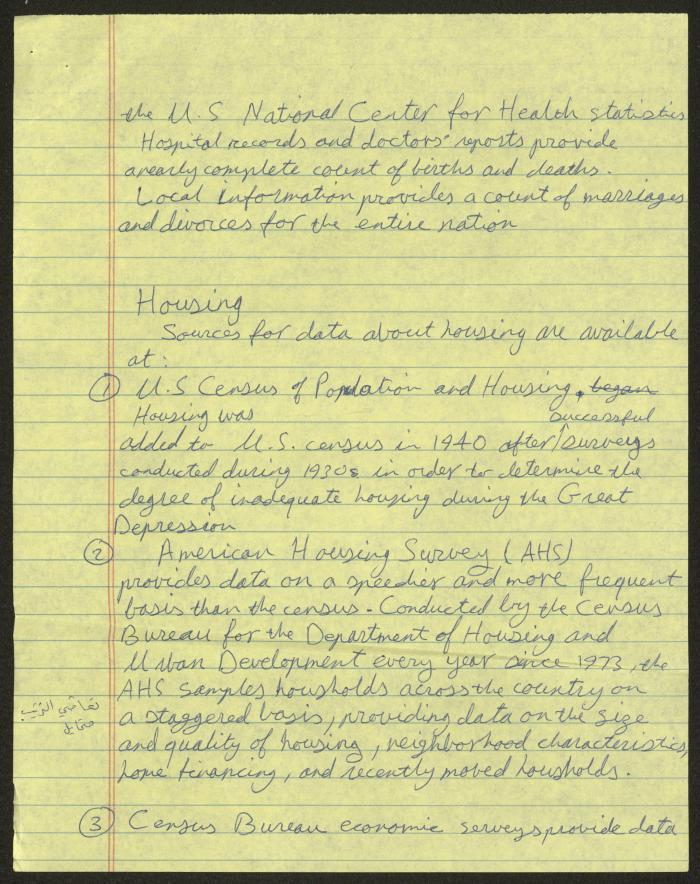 the U.S National Center for Health statistics
Hospital records and doctors' reports provide
a nearly complete count of births and deaths.
Local information provides a count of marriages
and divorces for the entire nation
Housing
Sources for data about housing are available
at:
① U.S Census of Population and Housing, began
Housing was successful
added to U.S. census in 1940 after surveys
conducted during 1930s in order to determine the
degree of inadequate housing during the Great
Depression
② American Housing Survey (AHS)
provides data on a speedier and more frequent
basis than the census. Conducted by the Census
Bureau for the Department of Housing and
Urban Development every year since 1973, the
AHS samples housholds across the country on
a staggered basis, providing data on the size
and quality of housing, neighborhood characteristics,
home financing, and recently moved housholds.
③ Census Bureau economic serveys provide data